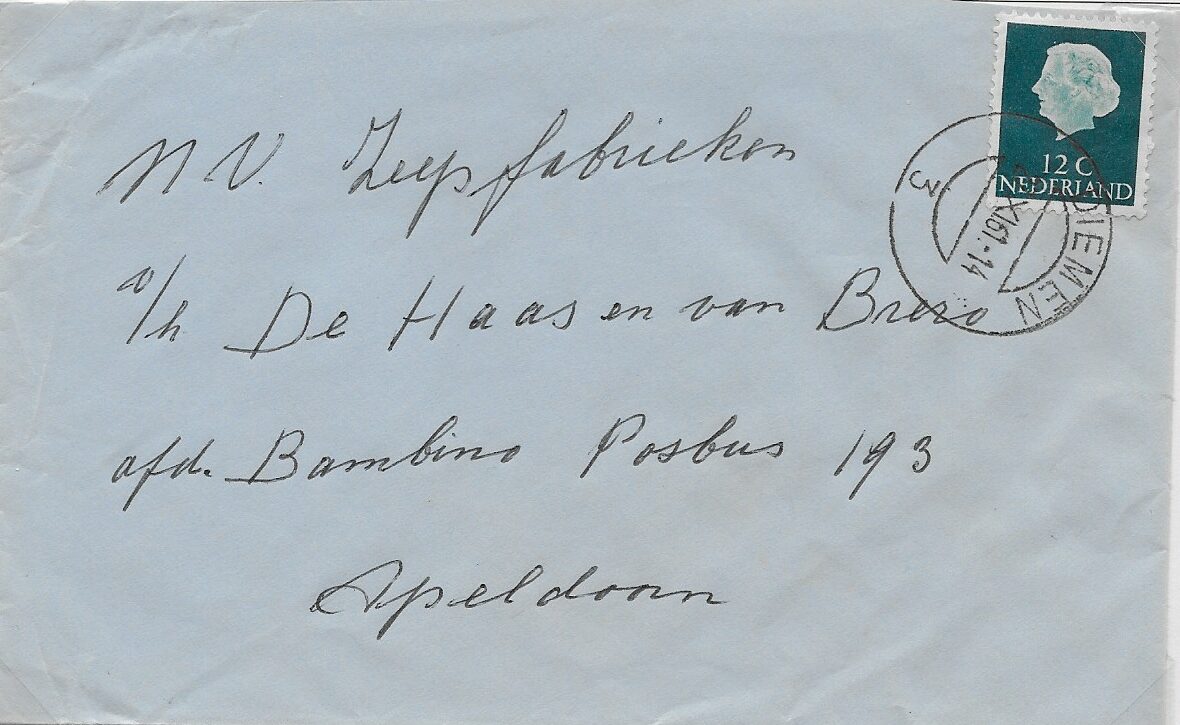 12 C
NEDERLAND
DIEMEN
XI61-14
3
N.V. Zeepfabrieken
v/h De Haas en van Brero
afd. Bambino Posbus 193
Apeldoorn